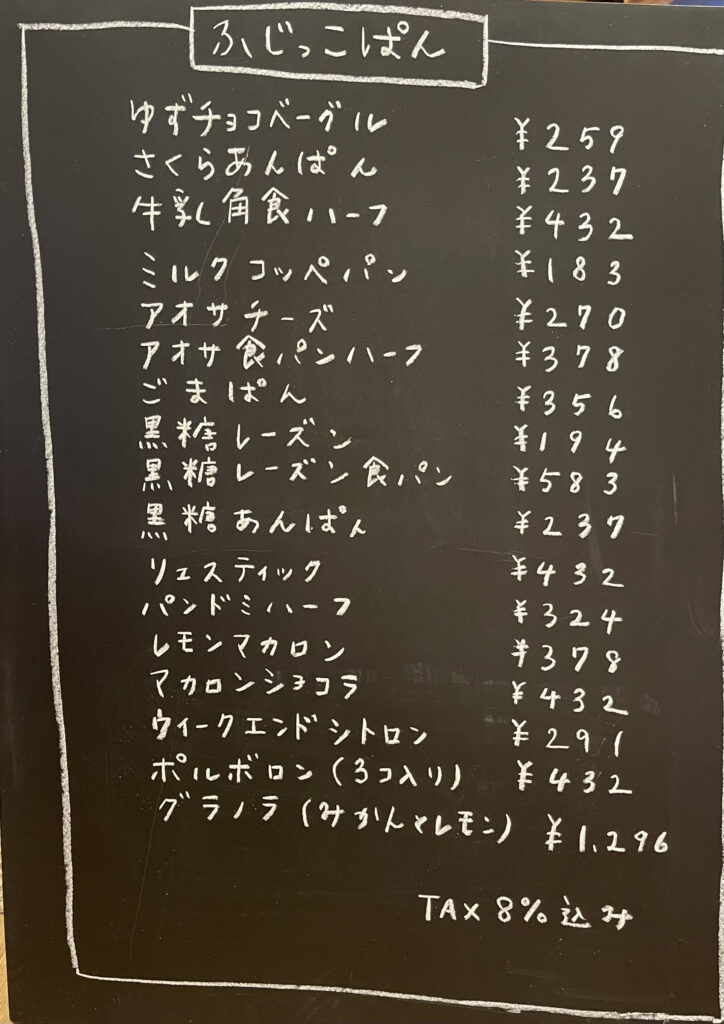 ふじっこぱん
ゆずチョコベーグル ¥259
さくらあんぱん ¥237
牛乳角食ハーフ ¥432
ミルクコッペパン ¥183
アオサチーズ ¥270
アオサ食パンハーフ ¥378
ごまぱん ¥356
黒糖レーズン ¥194
黒糖レーズン食パン ¥583
黒糖あんぱん ¥237
リュスティック ¥432
パンドミハーフ ¥324
レモンマカロン ¥378
マカロンショコラ ¥432
ウィークエンドシトロン ¥291
ポルボロン(3コ入り) ¥432
グラノラ(みかんとレモン) ¥1,296
TAX 8%込み